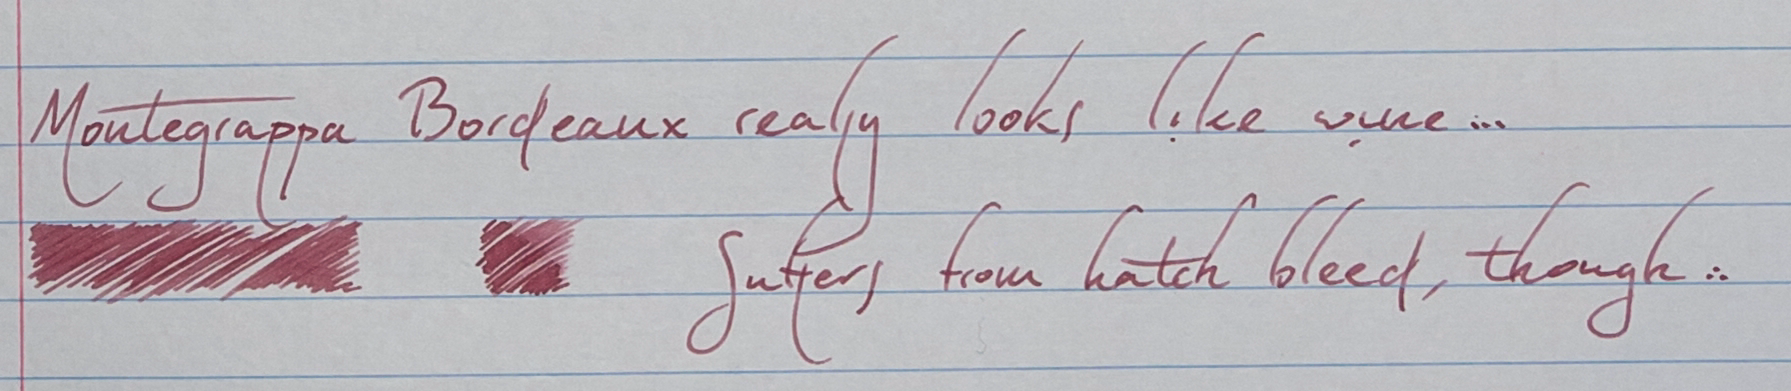 Montegrappa Bordeaux really looks like wine...
Suffers from hatch bleed, though...